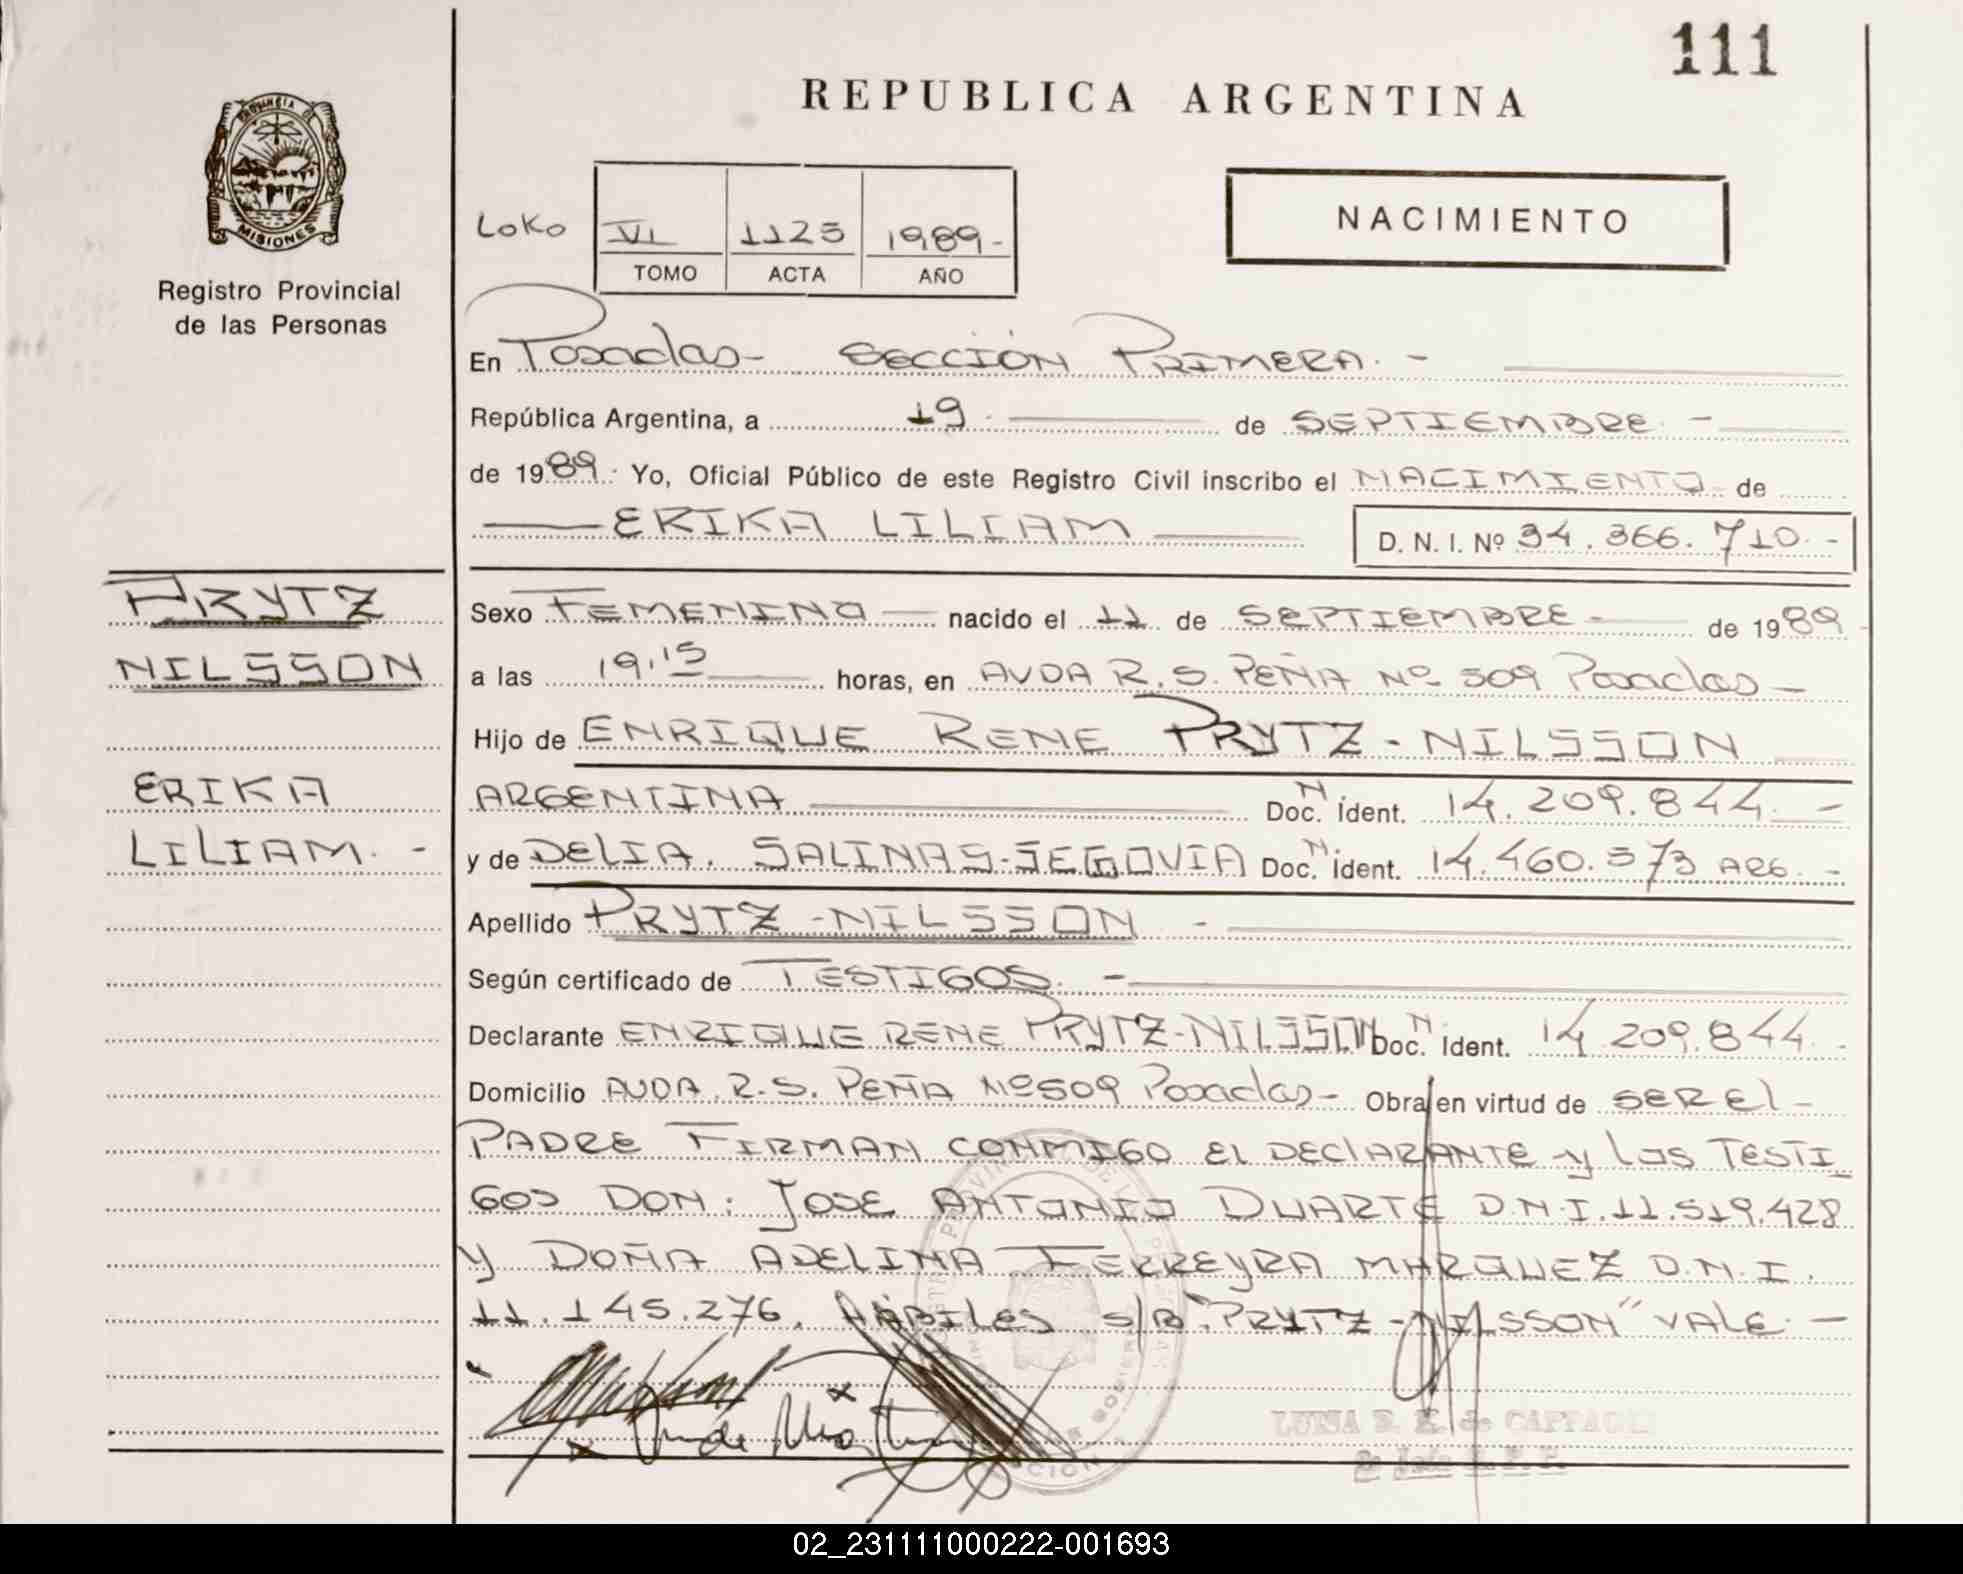 111
REPUBLICA ARGENTINA
PROVINCIA DE
MISIONES
Registro Provincial
de las Personas
LOKO
VI 1125 1989.-
TOMO ACTA AÑO
NACIMIENTO
En Posadas- SECCIÓN PRIMERA.-
República Argentina, a 19. de SEPTIEMBRE.-
de 1989. Yo, Oficial Público de este Registro Civil inscribo el NACIMIENTO de
ERIKA LILIAM D. N. I. Nº 34.366.710.-
PRYTZ
NILSSON
ERIKA
LILIAM.-
Sexo FEMENINO nacido el 11 de SEPTIEMBRE- de 1989-
a las 19,15 horas, en AVDA R.S. PEÑA Nº 509 Posadas-
Hijo de ENRIQUE RENE PRYTZ-NILSSON
ARGENTINA Doc. N Ident. 14.209.844.-
y de DELIA. SALINAS-SEGOVIA Doc. N Ident. 14.460.573 ARG.-
Apellido PRYTZ-NILSSON -
Según certificado de TESTIGOS.-
Declarante ENRIQUE RENE PRYTZ-NILSSON Doc. N Ident. 14 209.844.-
Domicilio AVDA. R.S. PEÑA Nº509 Posadas- Obra en virtud de SER El-
PADRE FIRMAN CONMIGO EL DECLARANTE y Los TESTI
GOS DON: JOSE ANTONIO DUARTE D.N.I.11.519.428
y DOÑA ADELINA FERREYRA MARQUEZ D.N.I.
11.145.276. HÁBILES S/B "PRYTZ-NILSSON" VALE.-
LUISA
02_231111000222-001693